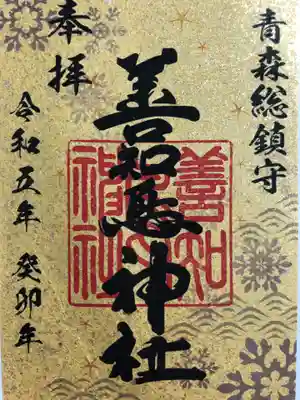 青森総鎮守
奉拝
善知鳥神社
善知鳥神社
令和五年 癸卯年